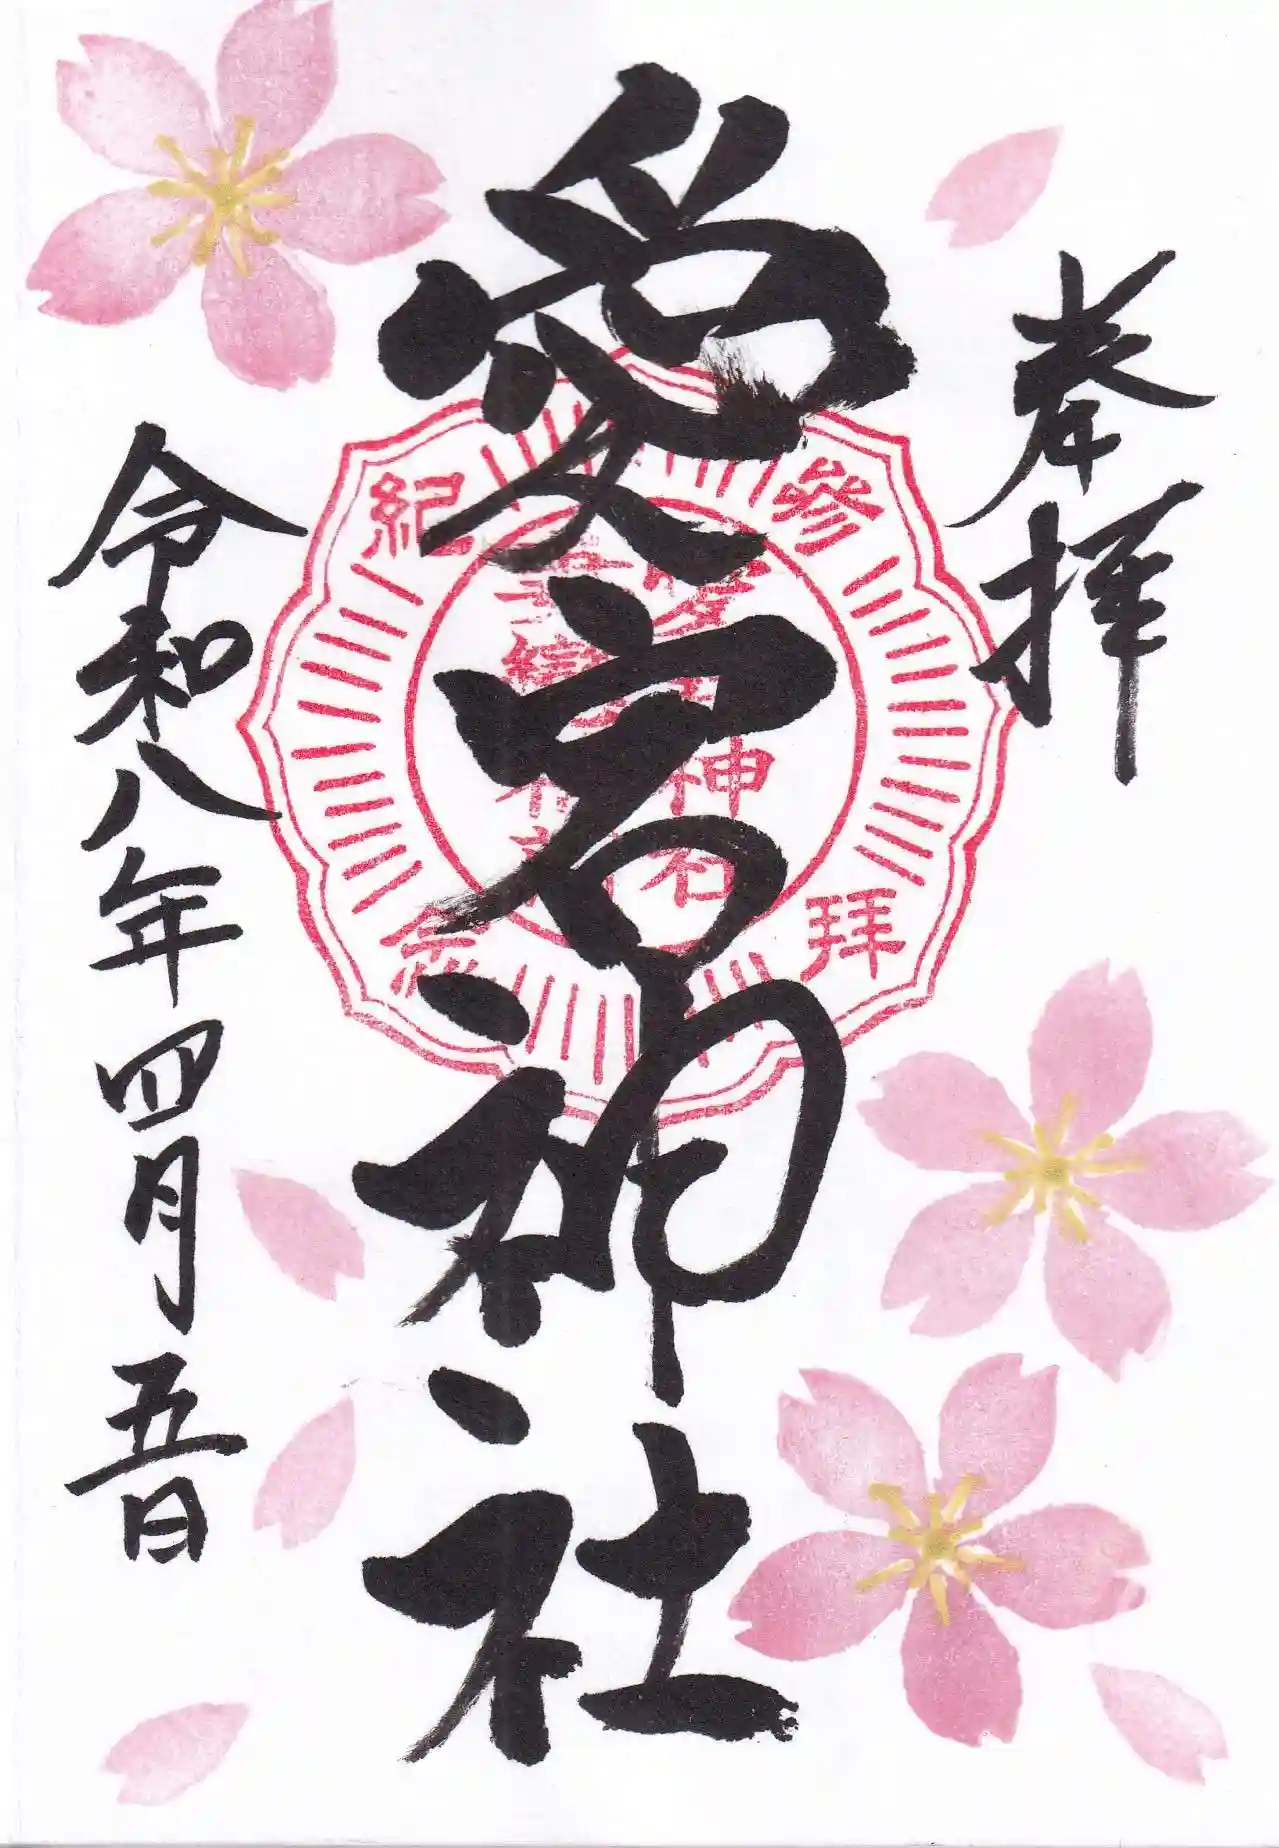 奉拝
愛宕神社
令和八年四月五日
參拝
紀念
神社